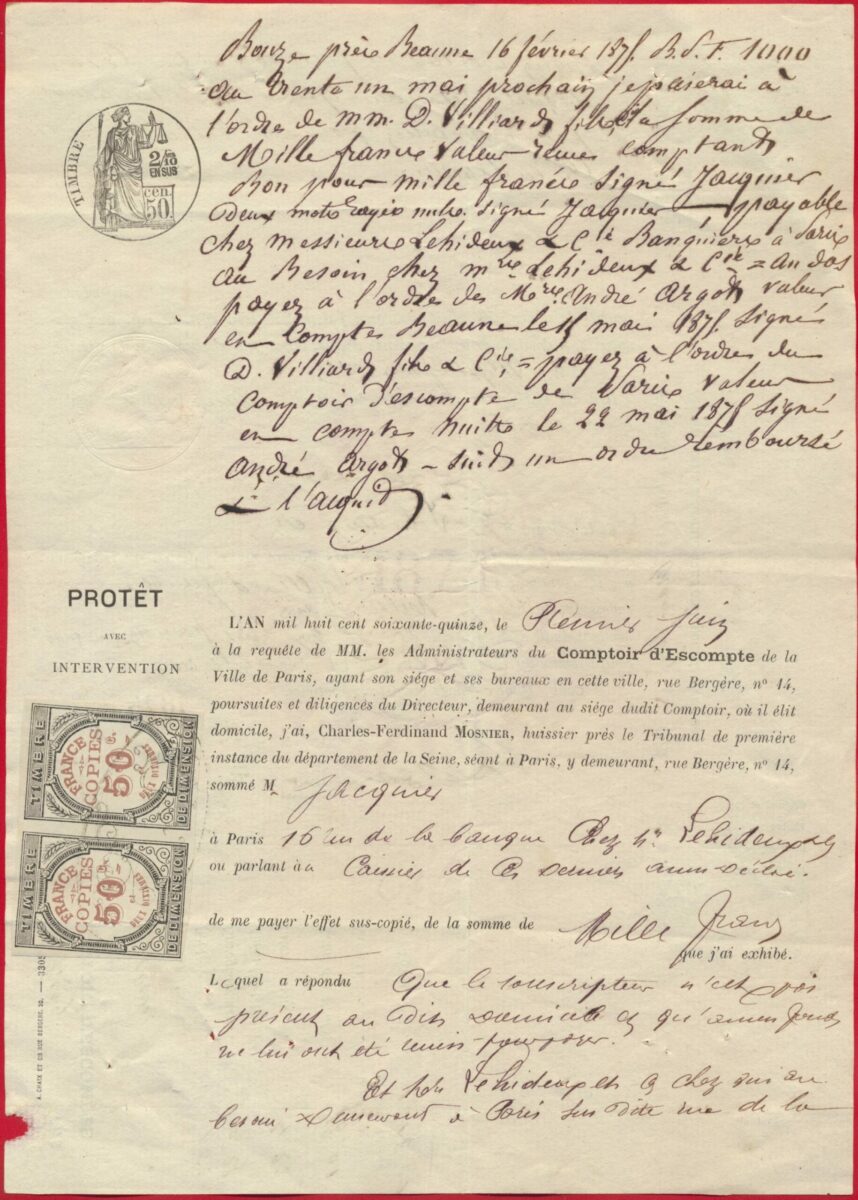 Bouze près Beaune 16 février 1875. B.P.F. 1000
au trente un mai prochain je paierai à
l'ordre de mm. D. Villiard fils & Cie la somme de
Mille francs valeur reçue comptant
Bon pour mille francs signé Jacquier
Deux mots rayés nuls. signé Jacquier payable
chez Messieurs Lehideux & Cie Banquiers à Paris
au Besoin chez mrs Lehideux & Cie = au dos
payez à l'ordre des Mrs André Argot valeur
en Comptes Beaune le 15 mai 1875. Signé
D. Villiard fils & Cie = payez à l'ordre du
Comptoir d'escompte de Paris valeur
en comptes Nuits le 22 mai 1875 signé
André Argot - suit un ordre remboursé
& l'acquit
TIMBRE
2/10
EN SUS
cen
50.
PROTÊT
AVEC
INTERVENTION
L'AN mil huit cent soixante-quinze, le Premier Juin
à la requête de MM. les Administrateurs du Comptoir d'Escompte de la
Ville de Paris, ayant son siége et ses bureaux en cette ville, rue Bergère, n° 14,
poursuites et diligences du Directeur, demeurant au siége dudit Comptoir, où il élit
domicile, j'ai, Charles-Ferdinand MOSNIER, huissier près le Tribunal de première
instance du département de la Seine, séant à Paris, y demeurant, rue Bergère, n° 14,
sommé M. Jacquier
à Paris 16 rue de la banque Chez Mrs Lehideux & Cie
ou parlant à un Caissier de ces derniers ainsi déclaré.
de me payer l'effet sus-copié, de la somme de Mille francs
que j'ai exhibé.
Lequel a répondu Que le souscripteur n'est pas
présent au dit domicile et qu'aucun fonds
ne lui ont été remis pour payer.
Et Mrs Lehideux et Cie chez qui au
besoin demeurant à Paris sus dite rue de la
TIMBRE
DE DIMENSION
FRANCE
COPIES
50
TIMBRE
DE DIMENSION
FRANCE
COPIES
50
A. CHAIX ET CIE RUE BERGÈRE, 20. — 3305